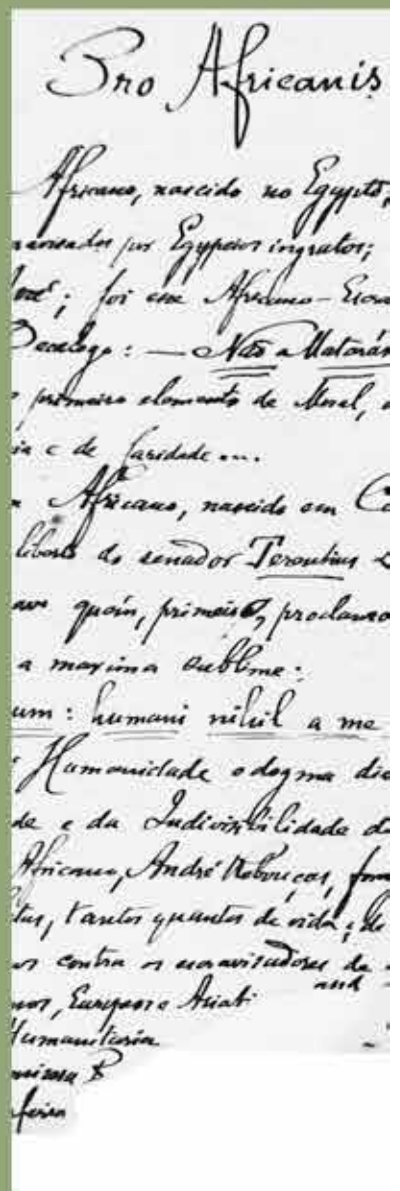 Pro Africanis
Africano, nascido no Egypto,
por Egypcios ingratos;
foi esse Africano-Escra
Decalogo: — Não a Matarás
primeiro elemento de Moral, d
ia e de Caridade...
Africano, nascido em Ca
liberto do senador Terentius
quem, primeiro, proclamo
a maxima sublime:
um: humani nihil a me
Humanidade o dogma
de e da Indivisibilidade d
Africano, André Rebouças,
tantos quantos de vida, de
contra os escravisadores de
Europeos e Asiati
Humanitaria